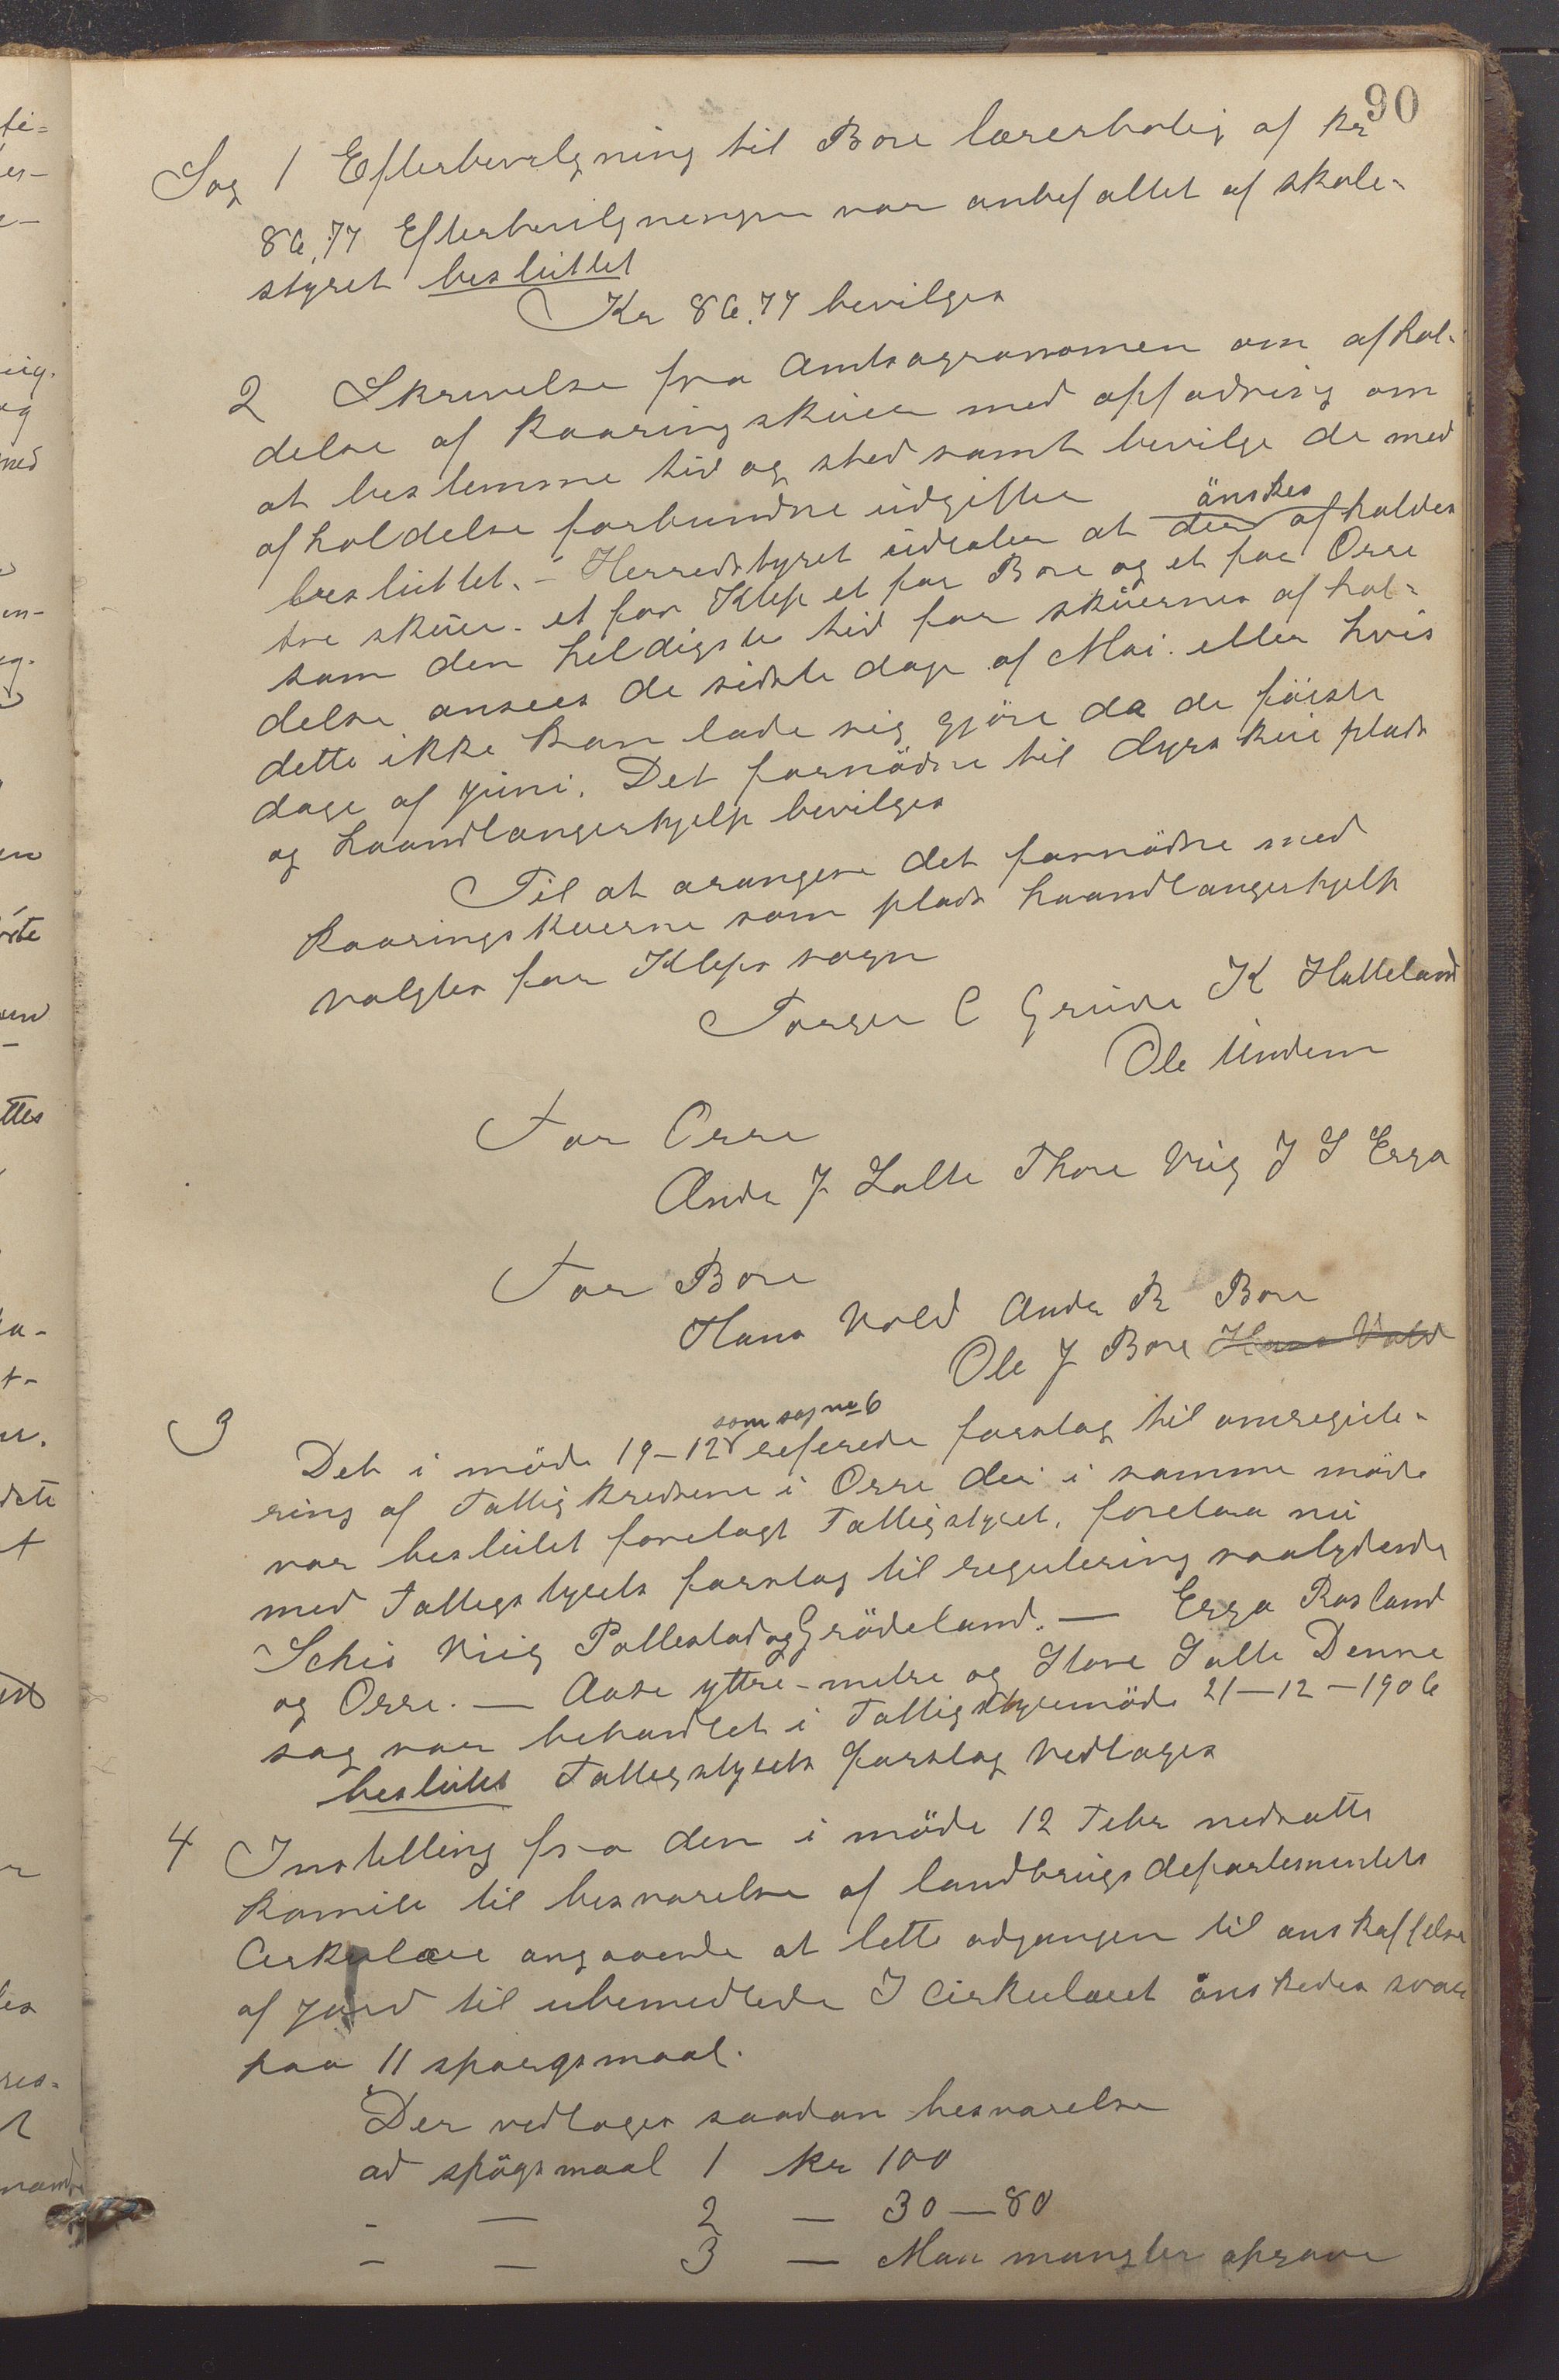 90
Sag 1 Efterbevilgning til Bore lærerbolig af kr
86,77 Efterbevilgningen var anbefallet af skole-
styret besluttet
Kr 86,77 bevilges
2 Skrivelse fra Amtsagronomen om afhol-
delse af kaaringskuer med opfodring om
at bestemme tid og sted samt bevilge de med
afholdelse forbundne udgifter
besluttet. - Herredstyret udtaler at der önskes afholdes
tre skuer. et for Klep et for Bore og et for Orre
som den heldigste tid for skuernes afhol-
delse ansees de sidste dage af Mai. eller hvis
dette ikke kan lade sig gjöre da de förste
dage af juni. Det fornödne til dyrskueplads
og haandlangerhjelp bevilges
Til at arangere det fornödne med
kaaringskuerne som plads haandlangerhjelp
valgtes for Kleps sogn
Torger C Grude K Hatteland
Ole Undem
For Orre
Anda J Salte Thore Viig J S Erga
For Bore
Hans Vold Anda R Bore
Ole J Bore Hans Vold
3
Det i möde 19-12 som sag no 6 referede forslag til omregule-
ring af Fattigkredsene i Orre der i samme möde
var beslutet forelagt Fattigstyret, forelaa nu
med Fattigstyrets forslag til regulering saalydende
Schie Viig Pollestad og Grödeland. — Erga Rosland
og Orre. — Aase yttre-metre og Store Salte Denne
sag var behandlet i Fattigstyremöde 21-12-1906
beslutet Fattigstyrets forslag vedtages
4 Instelling fra den i möde 12 Febr nedsatte
komite til besvarelse af landbrugsdepartementets
Cirkulære angaaende at lette adgangen til anskaffelse
af jord til ubemedlede I Cirkulæret önskedes svar
paa 11 spørgsmaal.
Der vedtages saadan besvarelse
ad spögsmaal 1 kr 100
- — 2 — 30-80
- — 3 — Man mangler opgave